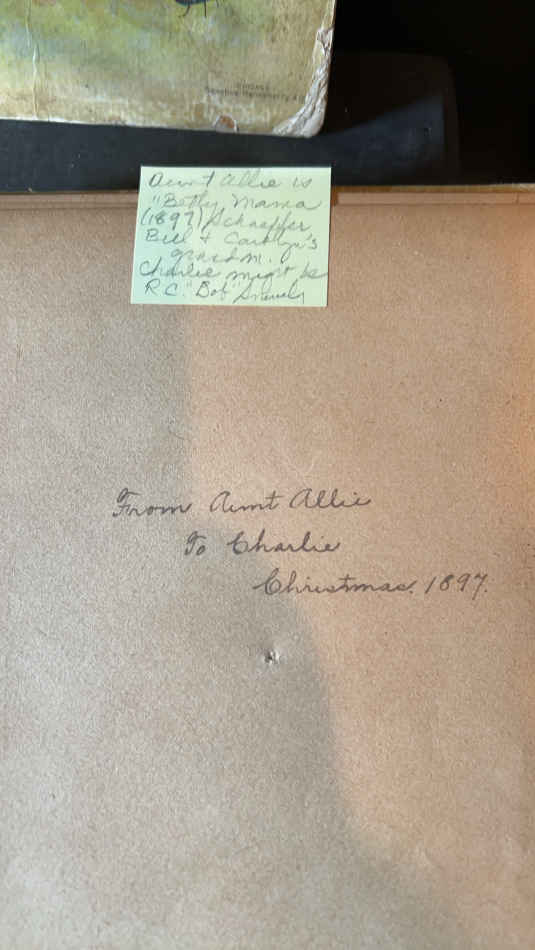 CHICAGO
Aunt Allie is
"Betty Mama
(1897) Schaeffer
Bill + Carolyn's
grandm.
Charlie might be
R.C. "Bob" Snively
From Aunt Allie
To Charlie
Christmas. 1897.